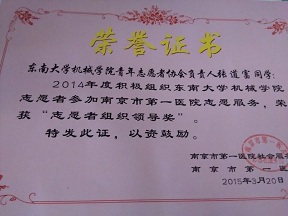 荣誉证书
东南大学机械学院青年志愿者协会负责人张道富同学:
2014年度积极组织东南大学机械学院
志愿者参加南京市第一医院志愿服务,荣
获“志愿者组织领导奖”。
特发此证,以资鼓励。
南京市第一医院社会服
南京市第一医
2015年3月20日